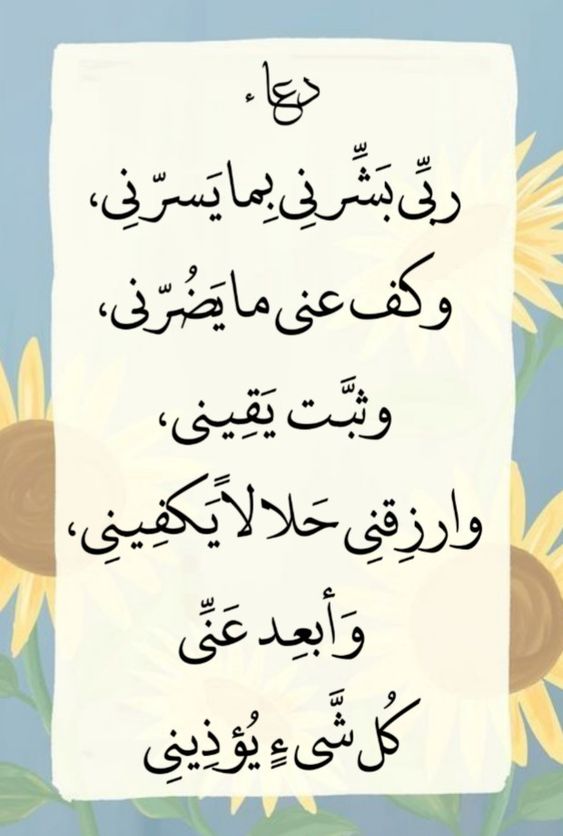 دعاء
ربِّى بَشِّرنِى بِما يَسرّنِى،
وكف عنى ما يَضُرّنى،
وثبَّت يَقِينى،
وارزِقنِى حَلالاً يَكفِينِى،
وَأبعِد عَنِّى
كُل شَّىءٍ يُؤذِينِى